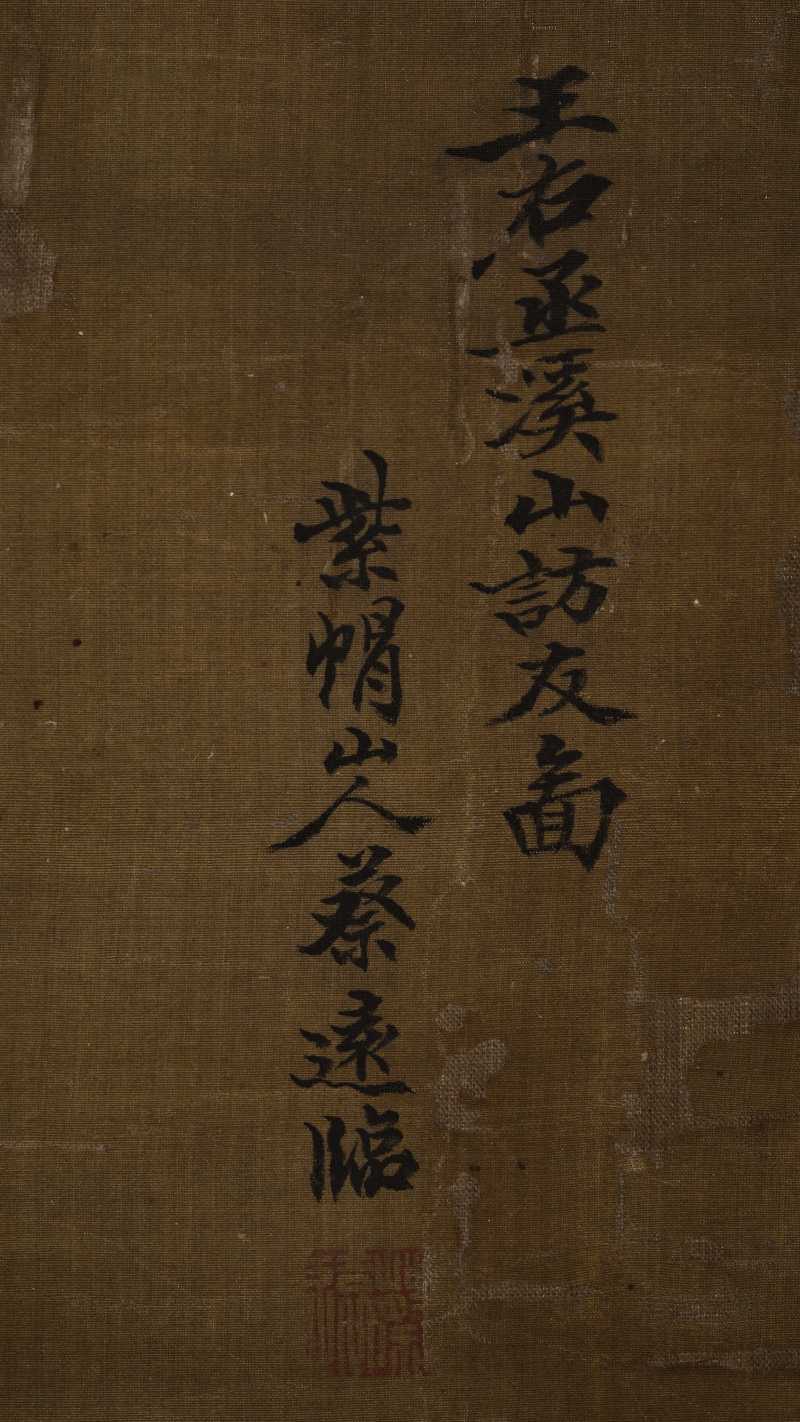 王右丞溪山訪友圖
紫帽山人蔡遠臨